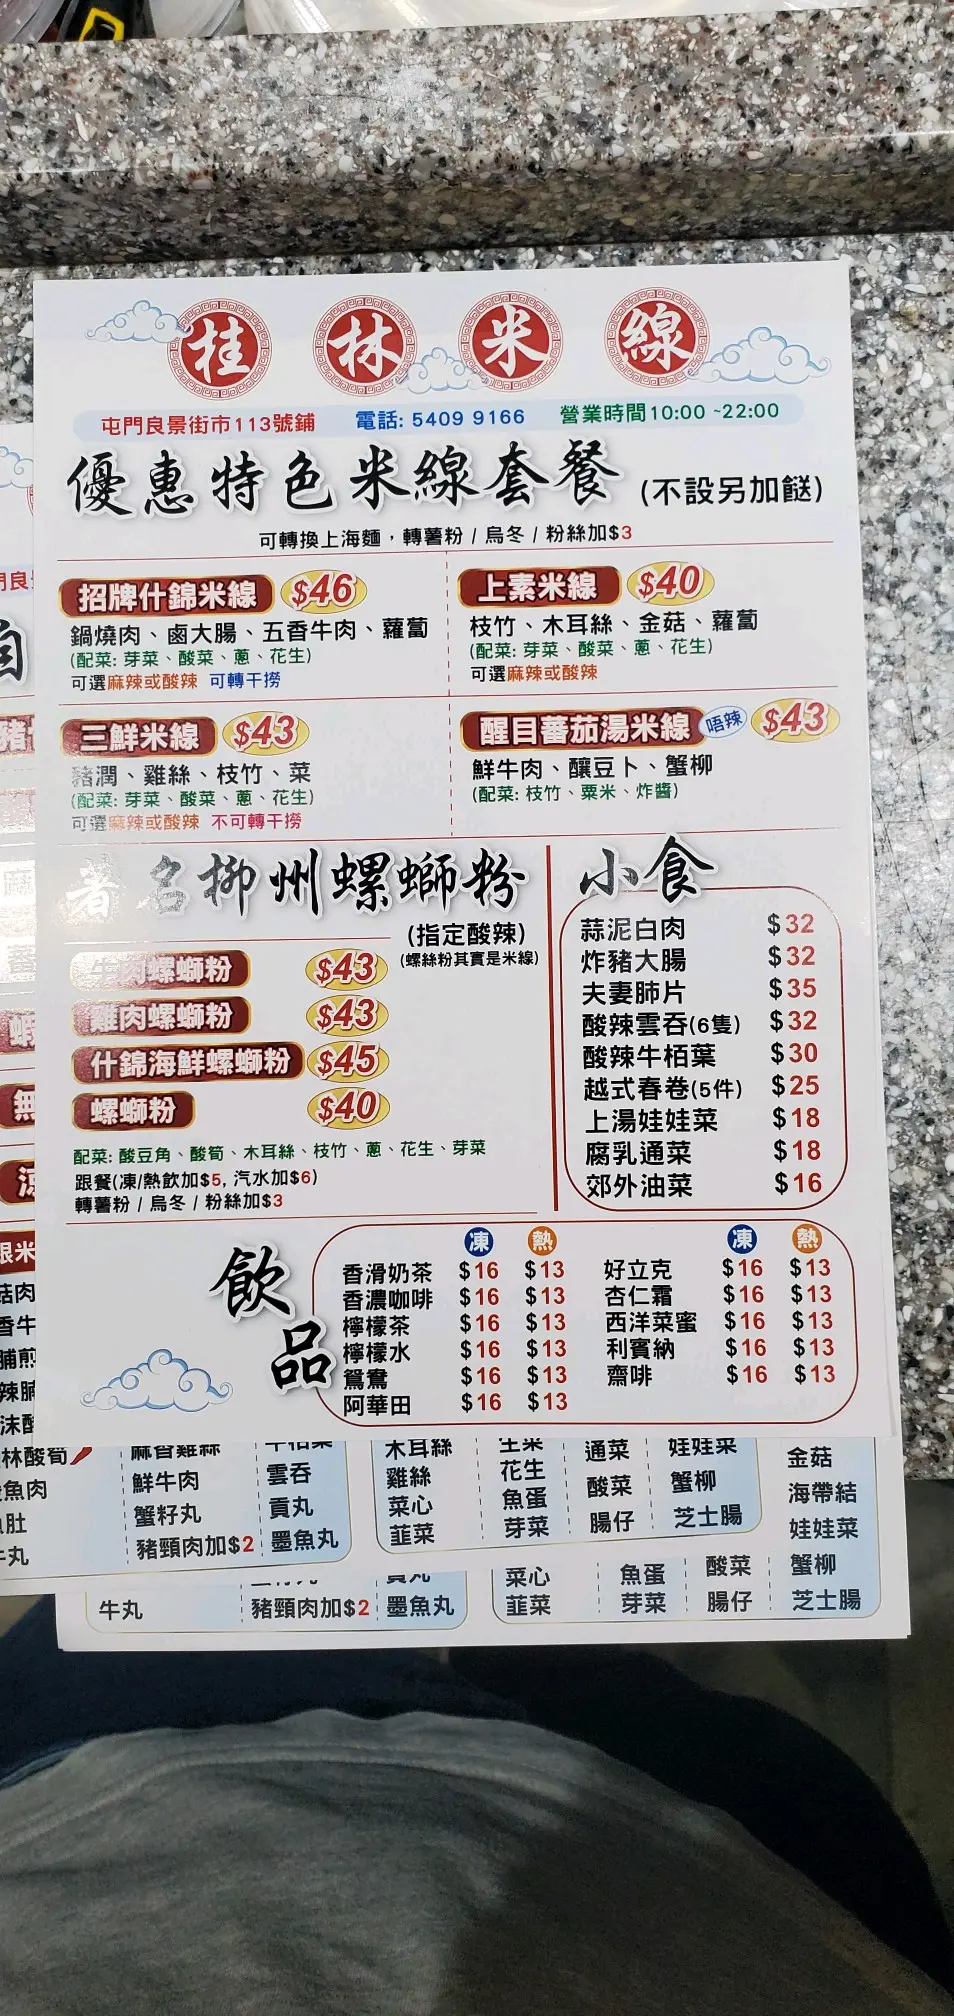 桂林米線
屯門良景街市113號鋪 電話: 5409 9166 營業時間10:00 ~22:00
優惠特色米線套餐 (不設另加餸)
可轉換上海麵，轉薯粉 / 烏冬 / 粉絲加$3
招牌什錦米線 $46
鍋燒肉、鹵大腸、五香牛肉、蘿蔔
(配菜: 芽菜、酸菜、蔥、花生)
可選麻辣或酸辣 可轉干撈
上素米線 $40
枝竹、木耳絲、金菇、蘿蔔
(配菜: 芽菜、酸菜、蔥、花生)
可選麻辣或酸辣
三鮮米線 $43
豬潤、雞絲、枝竹、菜
(配菜: 芽菜、酸菜、蔥、花生)
可選麻辣或酸辣 不可轉干撈
醒目蕃茄湯米線 唔辣 $43
鮮牛肉、釀豆卜、蟹柳
(配菜: 枝竹、粟米、炸醬)
著名柳州螺螄粉
(指定酸辣)
(螺絲粉其實是米線)
牛肉螺螄粉 $43
雞肉螺螄粉 $43
什錦海鮮螺螄粉 $45
螺螄粉 $40
配菜: 酸豆角、酸筍、木耳絲、枝竹、蔥、花生、芽菜
跟餐(凍/熱飲加$5, 汽水加$6)
轉薯粉 / 烏冬 / 粉絲加$3
小食
蒜泥白肉 $32
炸豬大腸 $32
夫妻肺片 $35
酸辣雲吞(6隻) $32
酸辣牛栢葉 $30
越式春卷(5件) $25
上湯娃娃菜 $18
腐乳通菜 $18
郊外油菜 $16
飲品
凍 熱
香滑奶茶 $16 $13
香濃咖啡 $16 $13
檸檬茶 $16 $13
檸檬水 $16 $13
鴛鴦 $16 $13
阿華田 $16 $13
凍 熱
好立克 $16 $13
杏仁霜 $16 $13
西洋菜蜜 $16 $13
利賓納 $16 $13
齋啡 $16 $13
林酸筍 麻香雞絲 木耳絲 生菜 通菜 娃娃菜 金菇
魚肉 鮮牛肉 雲吞 雞絲 花生 酸菜 蟹柳 海帶結
肚 蟹籽丸 貢丸 菜心 魚蛋 腸仔 芝士腸 娃娃菜
丸 豬頸肉加$2 墨魚丸 韮菜 芽菜 蟹柳
貢丸 菜心 魚蛋 酸菜 芝士腸
牛丸 豬頸肉加$2 墨魚丸 韮菜 芽菜 腸仔